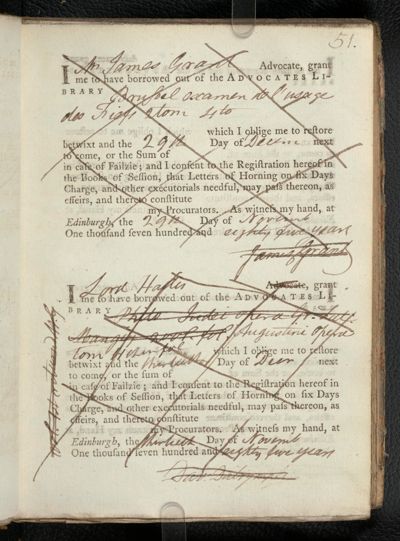 51.
I Mr James Grant Advocate, grant
me to have borrowed out of the ADVOCATES LI-
BRARY examen de l'usage
des Fiefs 2 tom 4to
which I oblige me to restore
betwixt and the 29th Day of Decem next
to come, or the Sum of
in case of Failzie; and I consent to the Registration hereof in
the Books of Session, that Letters of Horning on six Days
Charge, and other executorials needful, may pass thereon, as
effeirs, and thereto constitute
my Procurators. As witness my hand, at
Edinburgh, the 29th Day of Novemr
One thousand seven hundred and eighty five years
James Grant
I Lord Hailes Advocate, grant
me to have borrowed out of the ADVOCATES LI-
BRARY Philo Judei opera Gr. Lat.
Mangey 2 vol. fol Augustini opera
tom
which I oblige me to restore
betwixt and the thirtieth Day of Decem next
to come, or the sum of
in case of Failzie; and I consent to the Registration hereof in
the Books of Session, that Letters of Horning on six Days
Charge, and other executorials needful, may pass thereon, as
effeirs, and thereto constitute
my Procurators. As witness my hand, at
Edinburgh, the thirtieth Day of Novemb
One thousand seven hundred and eighty five years
Dav: Dalrymple